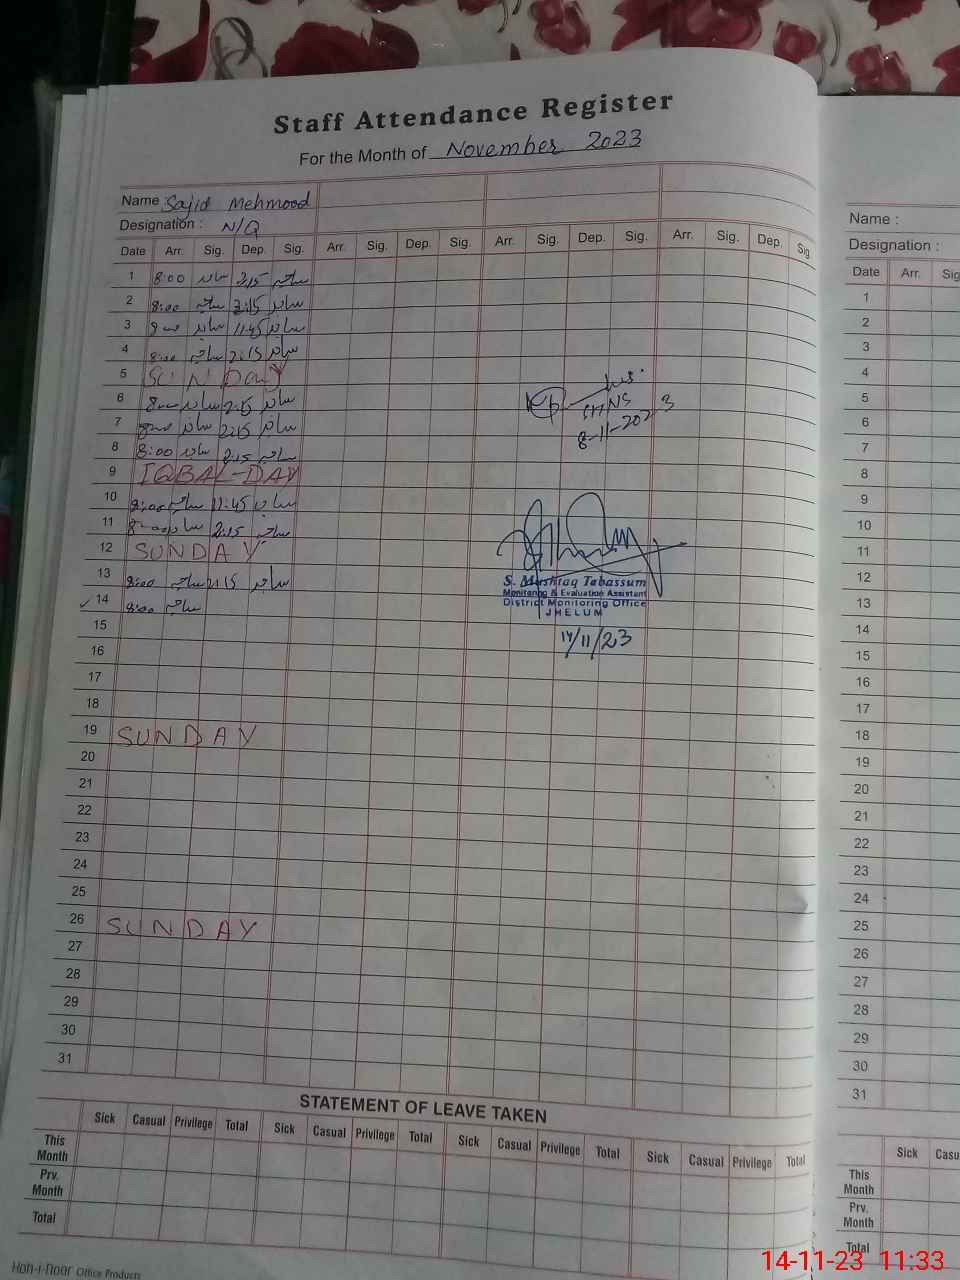 Staff Attendance Register
For the Month of November 2023
Name : Sajid Mehmood
Designation : N/Q
Date Arr. Sig. Dep. Sig. Arr. Sig. Dep. Sig. Arr. Sig. Dep. Sig. Arr. Sig. Dep. Sig.
1 8:00 ساجد 2:15 ساجد
2 8:00 ساجد 2:15 ساجد
3 8:00 ساجد 11:45 ساجد
4 8:00 ساجد 2:15 ساجد
5 SUNDAY
6 8:00 ساجد 2:15 ساجد
7 8:00 ساجد 2:15 ساجد
8 8:00 ساجد 2:15 ساجد
8-11-2023
9 IQBAL-DAY
10 8:00 ساجد 11:45 ساجد
11 8:00 ساجد 2:15 ساجد
12 SUNDAY
13 8:00 ساجد 2:15 ساجد
14 8:00 ساجد
S. Mushtaq Tabassum
Monitoring & Evaluation Assistant
District Monitoring Office
JHELUM
14/11/23
15
16
17
18
19 SUNDAY
20
21
22
23
24
25
26 SUNDAY
27
28
29
30
31
STATEMENT OF LEAVE TAKEN
Sick Casual Privilege Total Sick Casual Privilege Total Sick Casual Privilege Total Sick Casual Privilege Total
This Month
Prv. Month
Total
Koh-i-noor Office Products
Name :
Designation :
Date Arr. Sig
1
2
3
4
5
6
7
8
9
10
11
12
13
14
15
16
17
18
19
20
21
22
23
24
25
26
27
28
29
30
31
Sick Casu
This Month
Prv. Month
Total
14-11-23 11:33